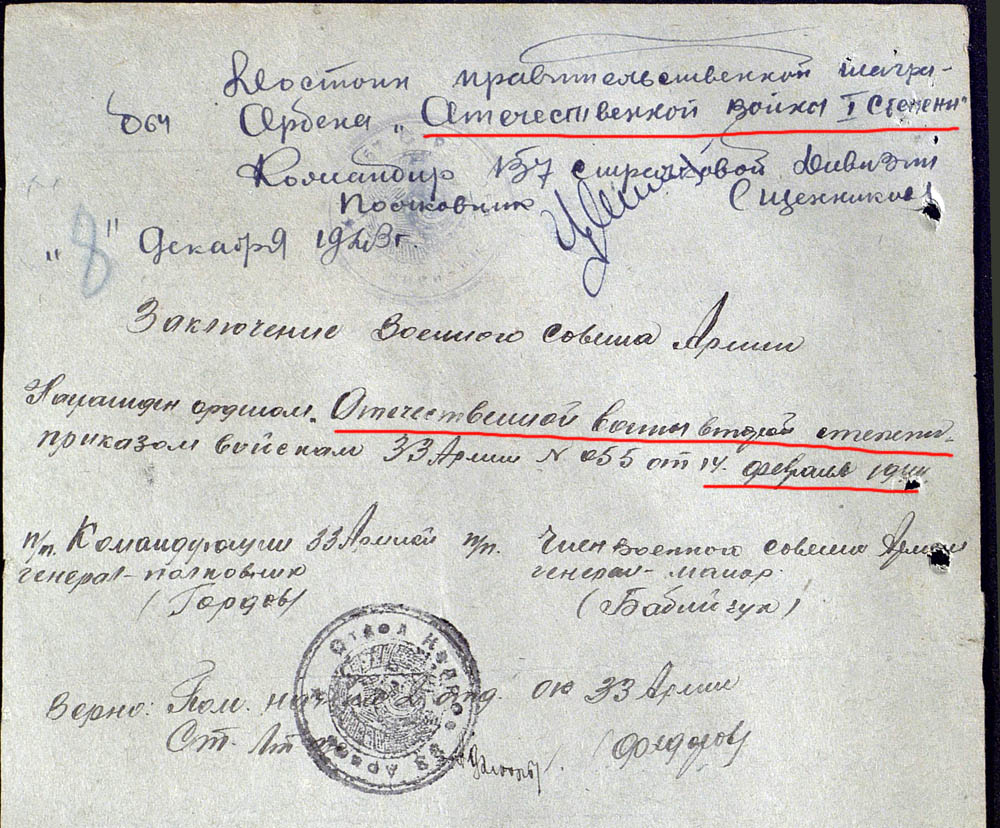 Достоин правительственной награ-
Ордена „Отечественной войны I степени"
Командир 157 стрелковой Дивизии
Полковник
"8" Декабря 1943 г.
Заключение военного совета Армии
Награжден орденом Отечественной войны второй степени
приказом войскам 33 Армии № 055 от 14 февраля 1944
п/п. Командующий 33 Армией п/п. Член военного совета Армии
генерал-полковник генерал-майор
(Гордов) (Бабийчук)
Верно: Пом. нач. отд ок 33 Армии
Ст. Лт (Федоров)
Отдел Кадров 33 Армии